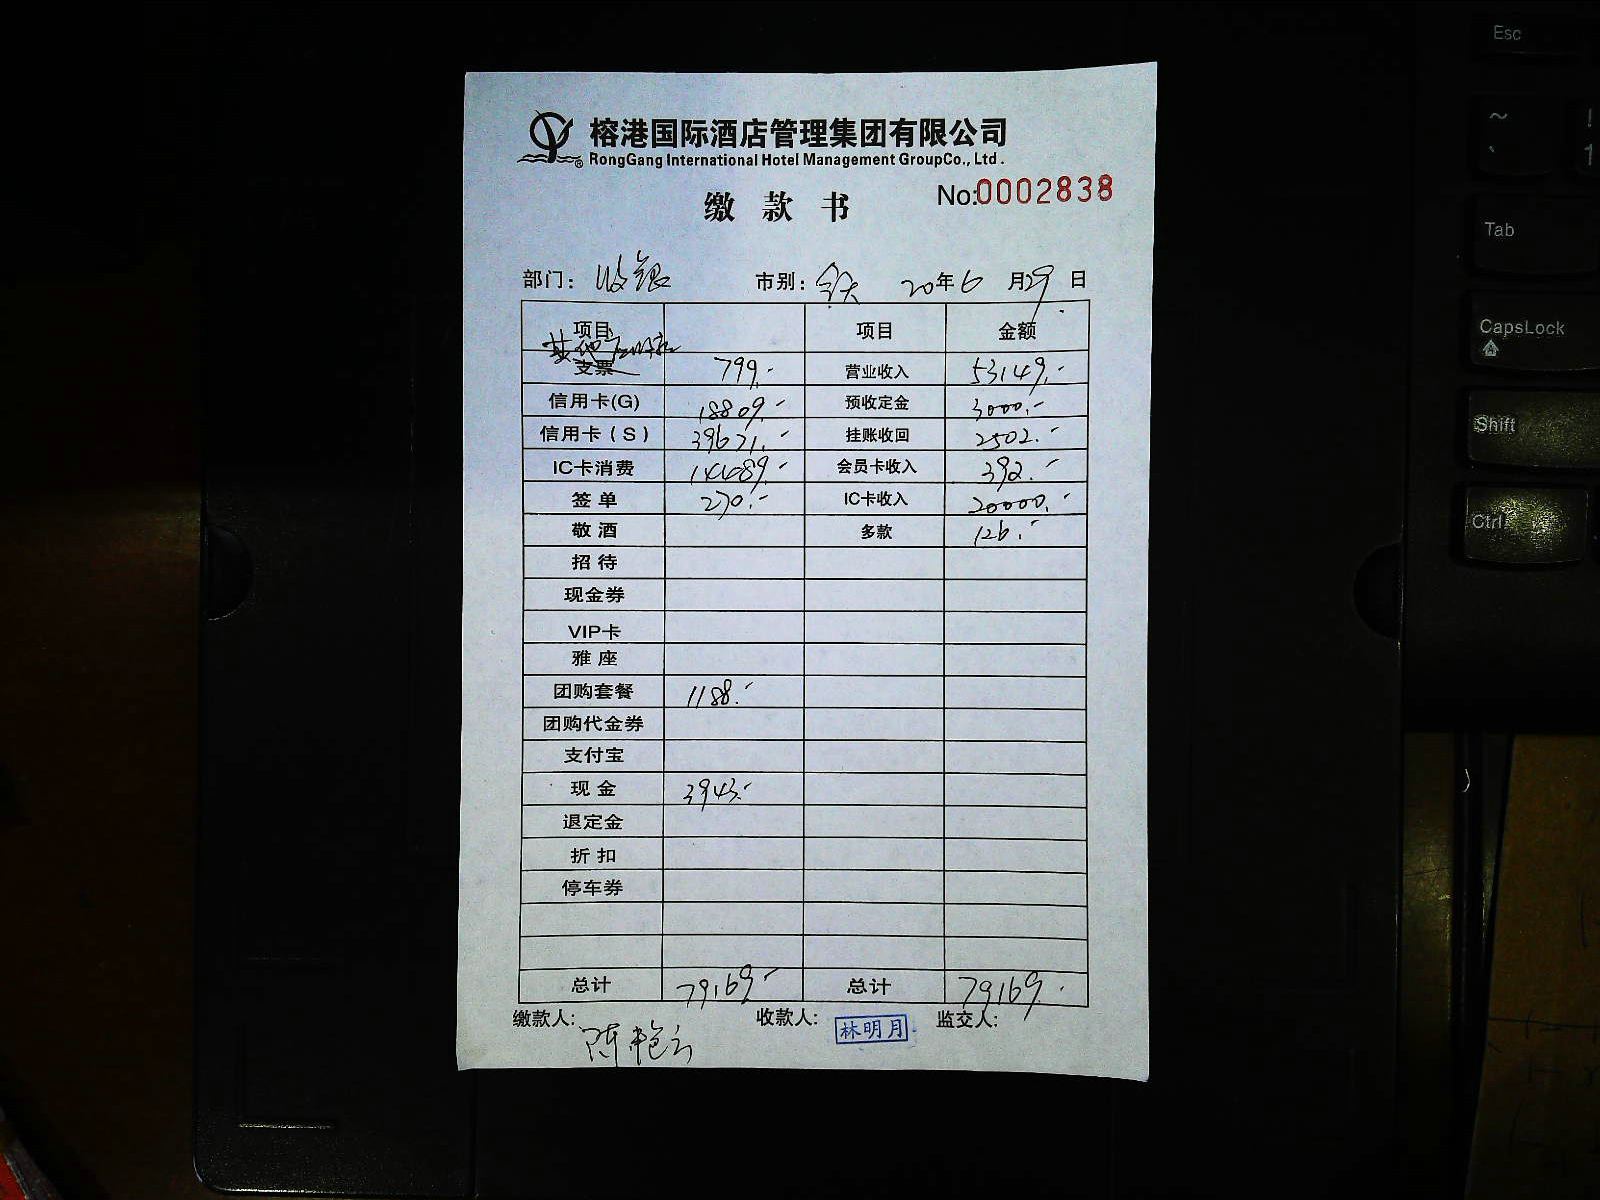 榕港国际酒店管理集团有限公司
RongGang International Hotel Management GroupCo., Ltd.
缴款书 No:0002838
部门: 收银 市别: 全天 20年6月29日
项目 项目 金额
其他应收款
支票 799.- 营业收入 53149.-
信用卡(G) 18809.- 预收定金 3000.-
信用卡(S) 39671.- 挂账收回 2502.-
IC卡消费 14489.- 会员卡收入 392.-
签单 270.- IC卡收入 20000.-
敬酒 多款 126.-
招待
现金券
VIP卡
雅座
团购套餐 1188.-
团购代金券
支付宝
现金 3943.-
退定金
折扣
停车券
总计 79169.- 总计 79169.-
缴款人: 陈艳云 收款人: 林明月 监交人:
Esc
~ !
` 1
Tab
CapsLock
Shift
Ctrl